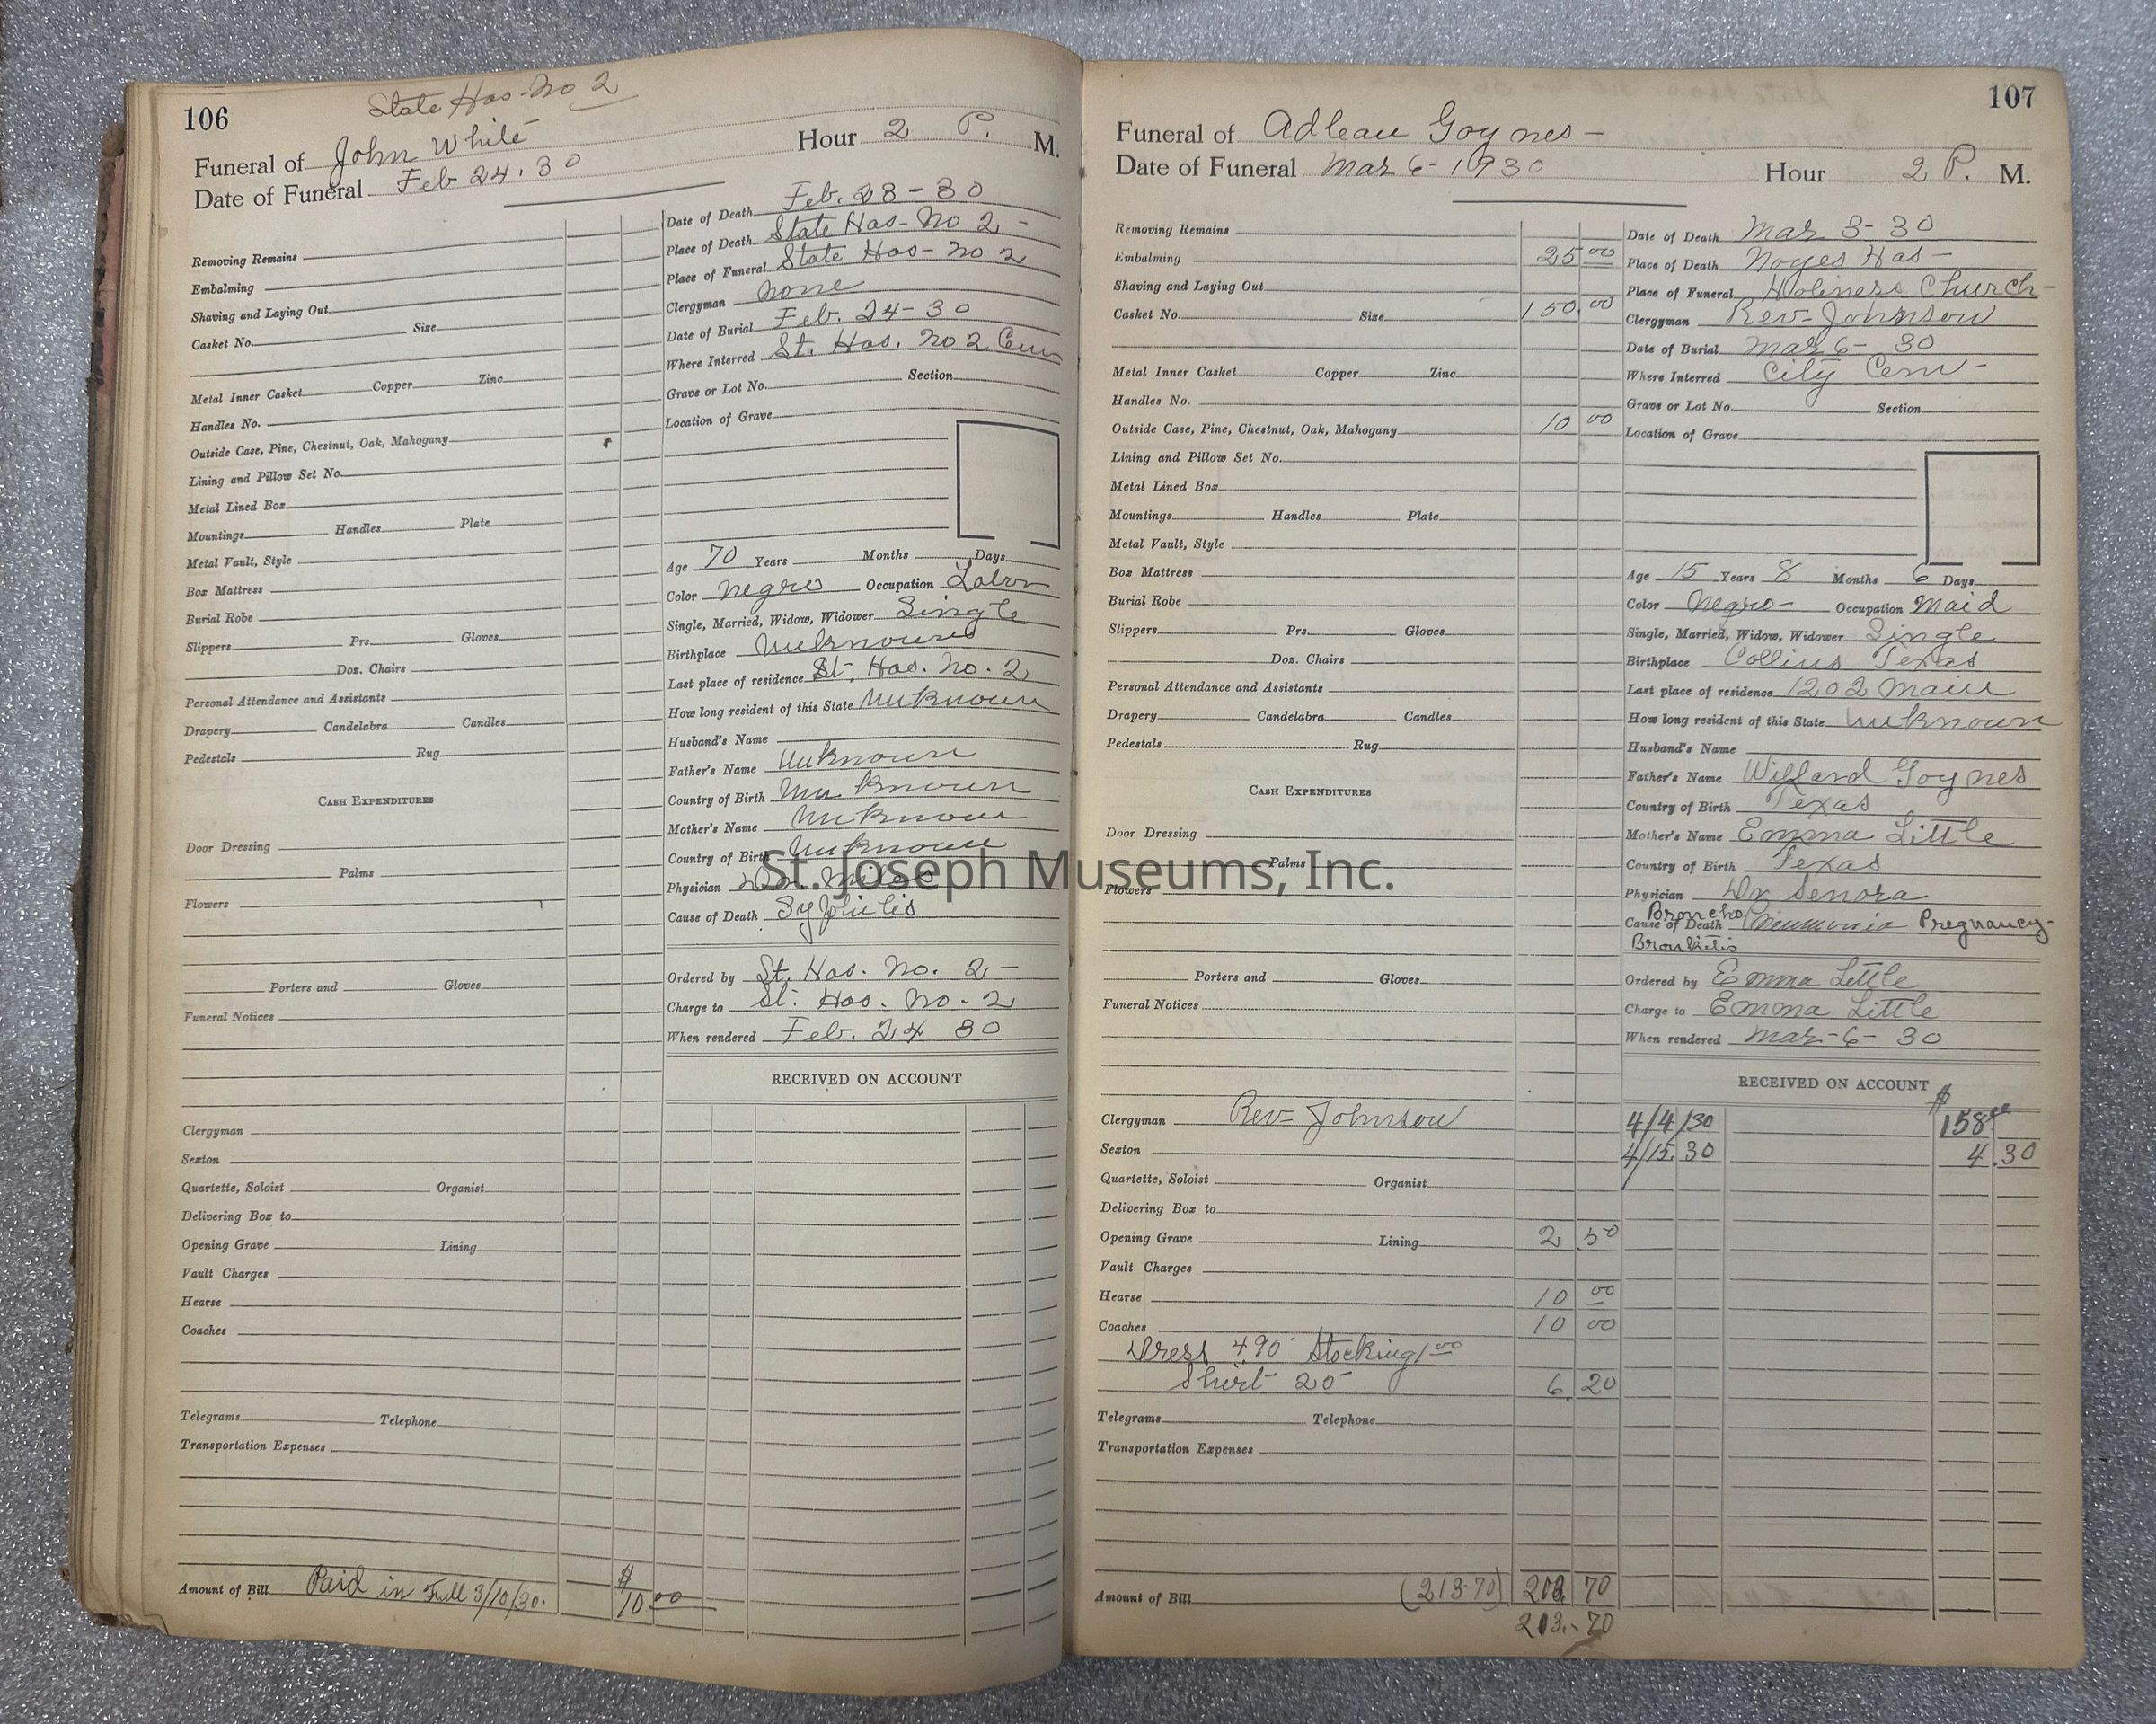 106
State Hos-No 2
Funeral of John White Hour 2 P. M.
Date of Funeral Feb 24. 30
Removing Remains
Embalming
Shaving and Laying Out
Casket No. Size
Metal Inner Casket Copper Zinc
Handles No.
Outside Case, Pine, Chestnut, Oak, Mahogany
Lining and Pillow Set No.
Metal Lined Box
Mountings Handles Plate
Metal Vault, Style
Box Mattress
Burial Robe
Slippers Prs. Gloves
Doz. Chairs
Personal Attendance and Assistants
Drapery Candelabra Candles
Pedestals Rug
CASH EXPENDITURES
Door Dressing
Palms
Flowers
Porters and Gloves
Funeral Notices
Clergyman
Sexton
Quartette, Soloist Organist
Delivering Box to
Opening Grave Lining
Vault Charges
Hearse
Coaches
Telegrams Telephone
Transportation Expenses
Amount of Bill Paid in Full 3/10/30. $10 00
Date of Death Feb. 23-30
Place of Death State Hos-No 2-
Place of Funeral State Hos-No 2
Clergyman None
Date of Burial Feb. 24-30
Where Interred St. Hos. No 2 Cem
Grave or Lot No. Section
Location of Grave
Age 70 Years Months Days
Color Negro Occupation Labor
Single, Married, Widow, Widower Single
Birthplace Unknown
Last place of residence St. Hos. No. 2
How long resident of this State Unknown
Husband's Name
Father's Name Unknown
Country of Birth Unknown
Mother's Name Unknown
Country of Birth Unknown
Physician Dr.
Cause of Death Syphilis
Ordered by St. Hos. No. 2-
Charge to St. Hos. No. 2
When rendered Feb. 24 30
RECEIVED ON ACCOUNT
St. Joseph Museums, Inc.
107
Funeral of Adleau Goynes-
Date of Funeral Mar 6-1930 Hour 2 P. M.
Removing Remains
Embalming 25 00
Shaving and Laying Out
Casket No. Size 150.00
Metal Inner Casket Copper Zinc
Handles No.
Outside Case, Pine, Chestnut, Oak, Mahogany 10 00
Lining and Pillow Set No.
Metal Lined Box
Mountings Handles Plate
Metal Vault, Style
Box Mattress
Burial Robe
Slippers Prs. Gloves
Doz. Chairs
Personal Attendance and Assistants
Drapery Candelabra Candles
Pedestals Rug
CASH EXPENDITURES
Door Dressing
Palms
Flowers
Porters and Gloves
Funeral Notices
Clergyman Rev- Johnson
Sexton
Quartette, Soloist Organist
Delivering Box to
Opening Grave Lining 2 50
Vault Charges
Hearse 10 00
Coaches 10 00
Dress 4.95 Stocking 1 00
Shirt 25 6. 20
Telegrams Telephone
Transportation Expenses
Amount of Bill (213.70) 213 70
213.-70
Date of Death Mar 3-30
Place of Death Noyes Hos-
Place of Funeral Holiness Church-
Clergyman Rev- Johnson
Date of Burial Mar 6- 30
Where Interred City Cem-
Grave or Lot No. Section
Location of Grave
Age 15 Years 8 Months 6 Days
Color Negro- Occupation Maid
Single, Married, Widow, Widower Single
Birthplace Collins Texas
Last place of residence 1202 Main
How long resident of this State Unknown
Husband's Name
Father's Name Willard Goynes
Country of Birth Texas
Mother's Name Emma Little
Country of Birth Texas
Physician Dr Senora
Cause of Death Broncho Pneumonia Pregnancy-
Bronkitis
Ordered by Emma Little
Charge to Emma Little
When rendered Mar-6- 30
RECEIVED ON ACCOUNT
4/4/30 $158
4/15.30 4.30